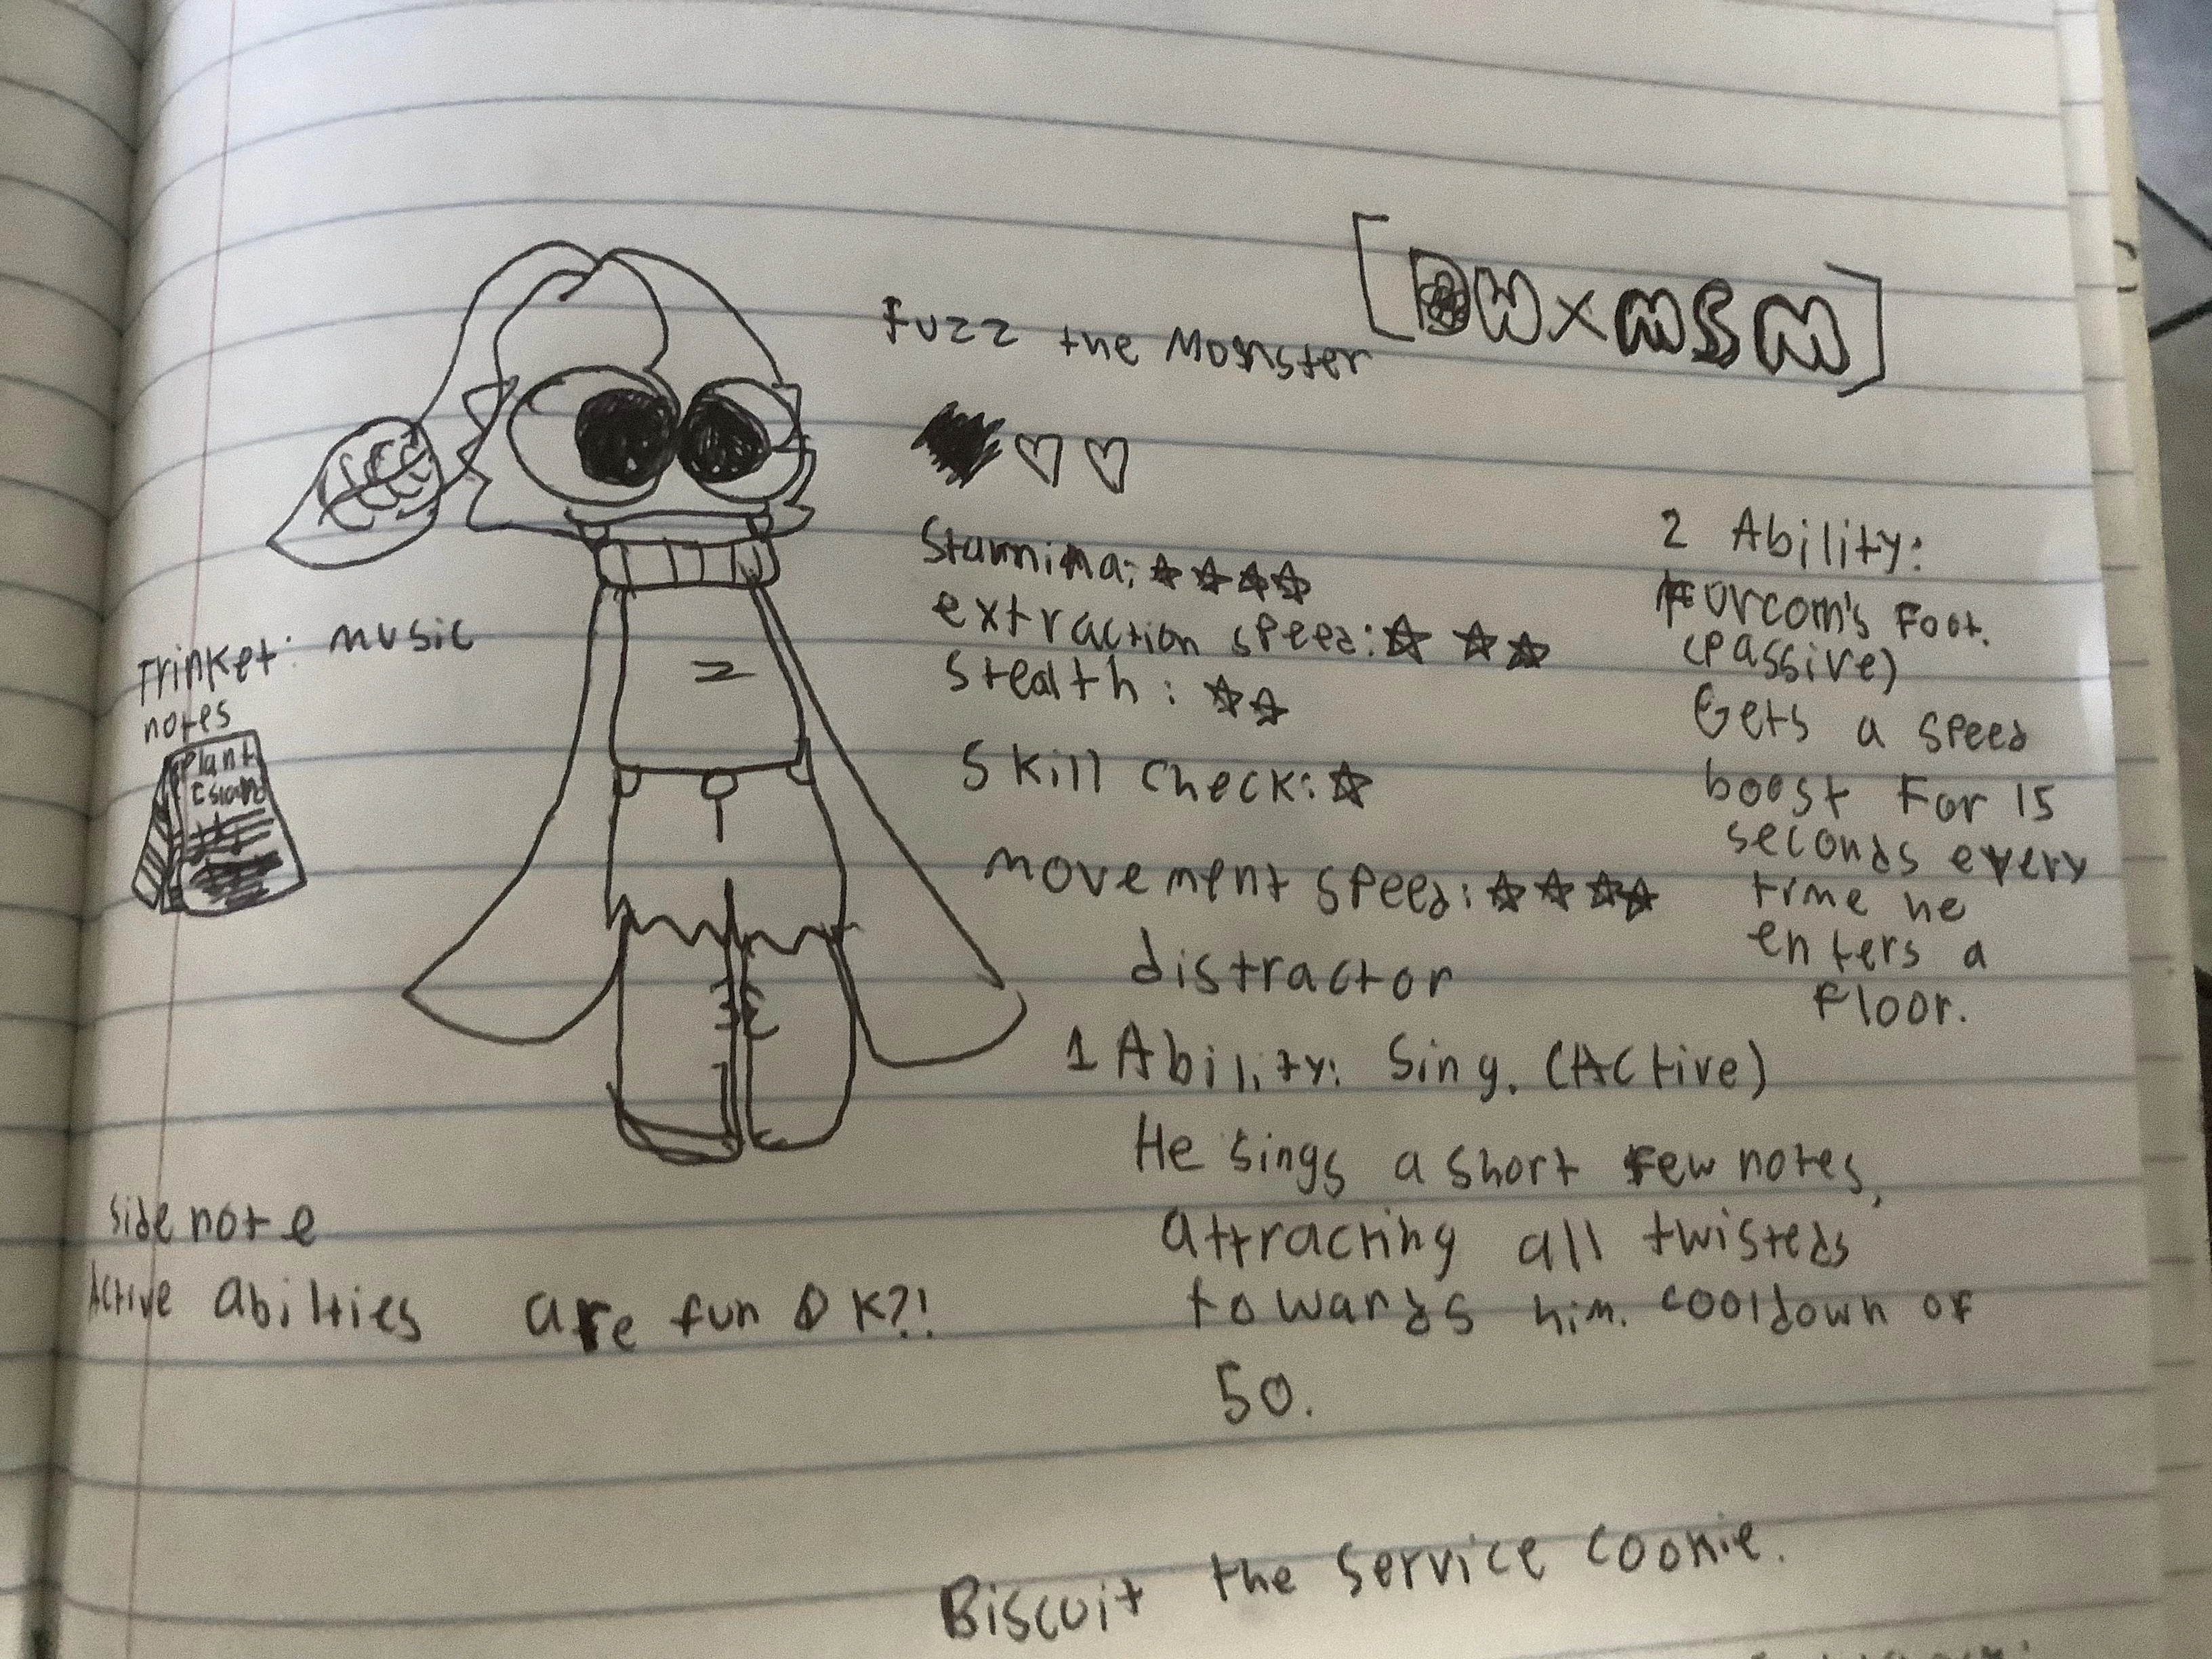 [DW x MSM]
Fuzz the Monster
Stamnina:
extraction speed:
Stealth:
Skill check:
movement speed:
distractor
1 Ability: Sing. (Active)
He sings a short few notes,
attracting all twisteds
towards him. cooldown of
50.
2 Ability:
Furcorn's Foot.
(Passive)
Gets a speed
boost For 15
seconds every
time he
enters a
Floor.
Trinket: music
notes
Plant
Island
side note
Active abilties are fun OK?!
Biscuit the Service Cookie.